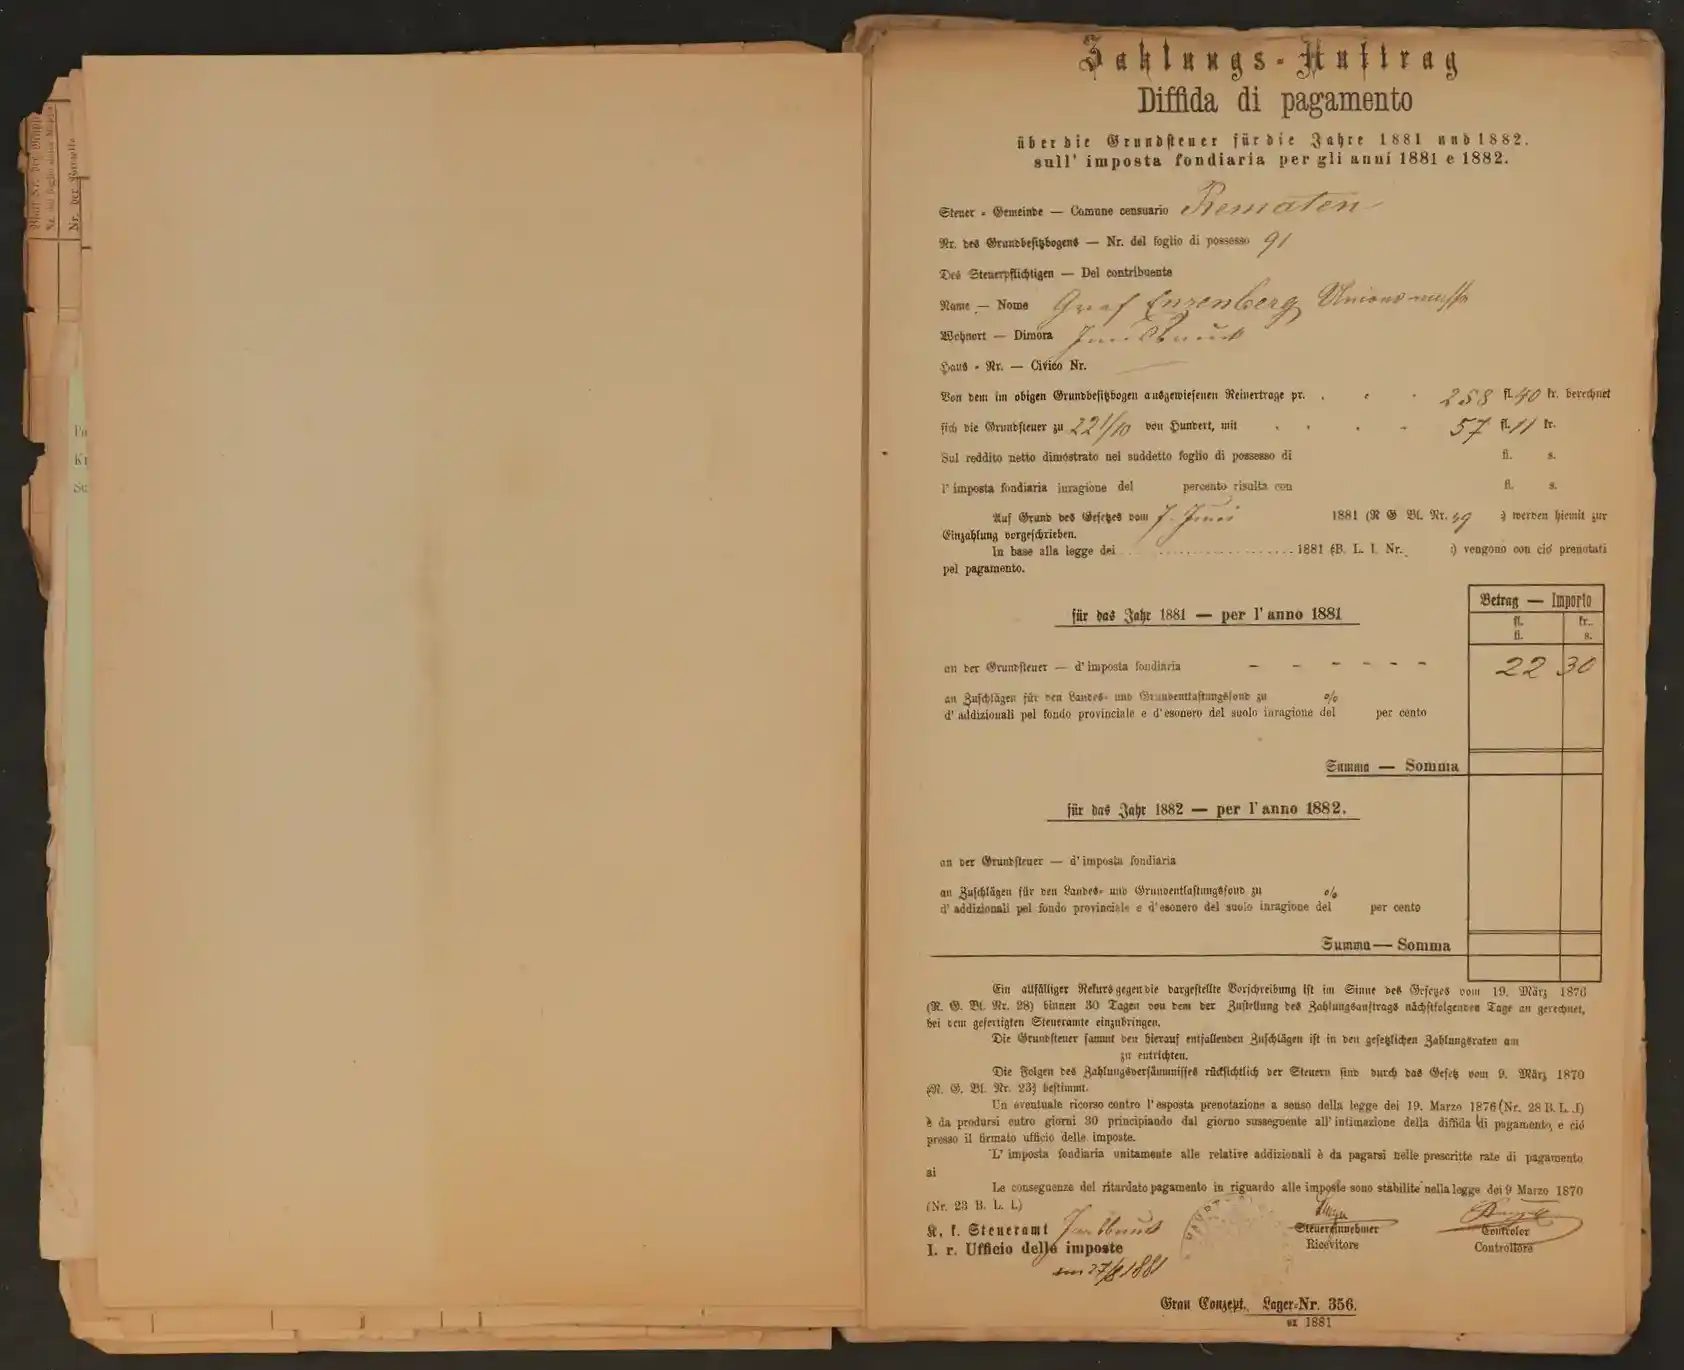 Blatt Nr. der Mappe
Nr. del foglio della Mappa
Nr. der Parzelle
Zahlungs-Auftrag
Diffida di pagamento
über die Grundsteuer für die Jahre 1881 und 1882.
sull' imposta fondiaria per gli anni 1881 e 1882.
Steuer-Gemeinde — Comune censuario Kematen
Nr. des Grundbesitzbogens — Nr. del foglio di possesso 91
Des Steuerpflichtigen — Del contribuente
Name — Nome Graf Enzenberg
Wohnort — Dimora Innsbruck
Haus-Nr. — Civico Nr. —
Von dem im obigen Grundbesitzbogen ausgewiesenen Reinertrage pr. . . . 258 fl. 40 kr. berechnet
sich die Grundsteuer zu 22 7/10 von Hundert, mit . . . . 57 fl. 11 kr.
Sul reddito netto dimostrato nel suddetto foglio di possesso di fi. s.
l' imposta fondiaria inragione del percento risulta con fi. s.
Auf Grund des Gesetzes vom 7. Juni 1881 (R G Bl. Nr. 49 .) werden hiemit zur
Einzahlung vorgeschrieben.
In base alla legge dei ........................ 1881 (B. L. I. Nr. .) vengono con ció prenotati
pel pagamento.
Betrag — Importo
für das Jahr 1881 — per l' anno 1881
fl. kr.
fi. s.
an der Grundsteuer — d' imposta fondiaria — — — — — — 22 30
an Zuschlägen für den Landes- und Grundentlastungsfond zu %
d' addizionali pel fondo provinciale e d' esonero del suolo inragione del per cento
Summa — Somma
für das Jahr 1882 — per l' anno 1882.
an der Grundsteuer — d' imposta fondiaria
an Zuschlägen für den Landes- und Grundentlastungsfond zu %
d' addizionali pel fondo provinciale e d' esonero del suolo inragione del per cento
Summa — Somma
Ein allfälliger Rekurs gegen die dargestellte Vorschreibung ist im Sinne des Gesetzes vom 19. März 1876
(R. G. Bl. Nr. 28) binnen 30 Tagen von dem der Zustellung des Zahlungsauftrags nächstfolgenden Tage an gerechnet,
bei dem gefertigten Steueramte einzubringen.
Die Grundsteuer sammt den hierauf entfallenden Zuschlägen ist in den gesetzlichen Zahlungsraten am
zu entrichten.
Die Folgen des Zahlungsversäumnisses rücksichtlich der Steuern sind durch das Gesetz vom 9. März 1870
(R. G. Bl. Nr. 23) bestimmt.
Un eventuale ricorso contro l' esposta prenotazione a senso della legge dei 19. Marzo 1876 (Nr. 28 B. L. I)
è da prodursi entro giorni 30 principiando dal giorno susseguente all' intimazione della diffida di pagamento, e ció
presso il firmato ufficio delle imposte.
L' imposta fondiaria unitamente alle relative addizionali è da pagarsi nelle prescritte rate di pagamento
ai
Le conseguenze del ritardato pagamento in riguardo alle imposte sono stabilite nella legge dei 9 Marzo 1870
(Nr. 23 B. L. I.)
K. k. Steueramt Innsbruck
Steuereinnehmer Controlor
I. r. Ufficio delle imposte
Ricevitore Controllore
am 27/8 1881
Grau Conzept. Lager-Nr. 356.
ex 1881